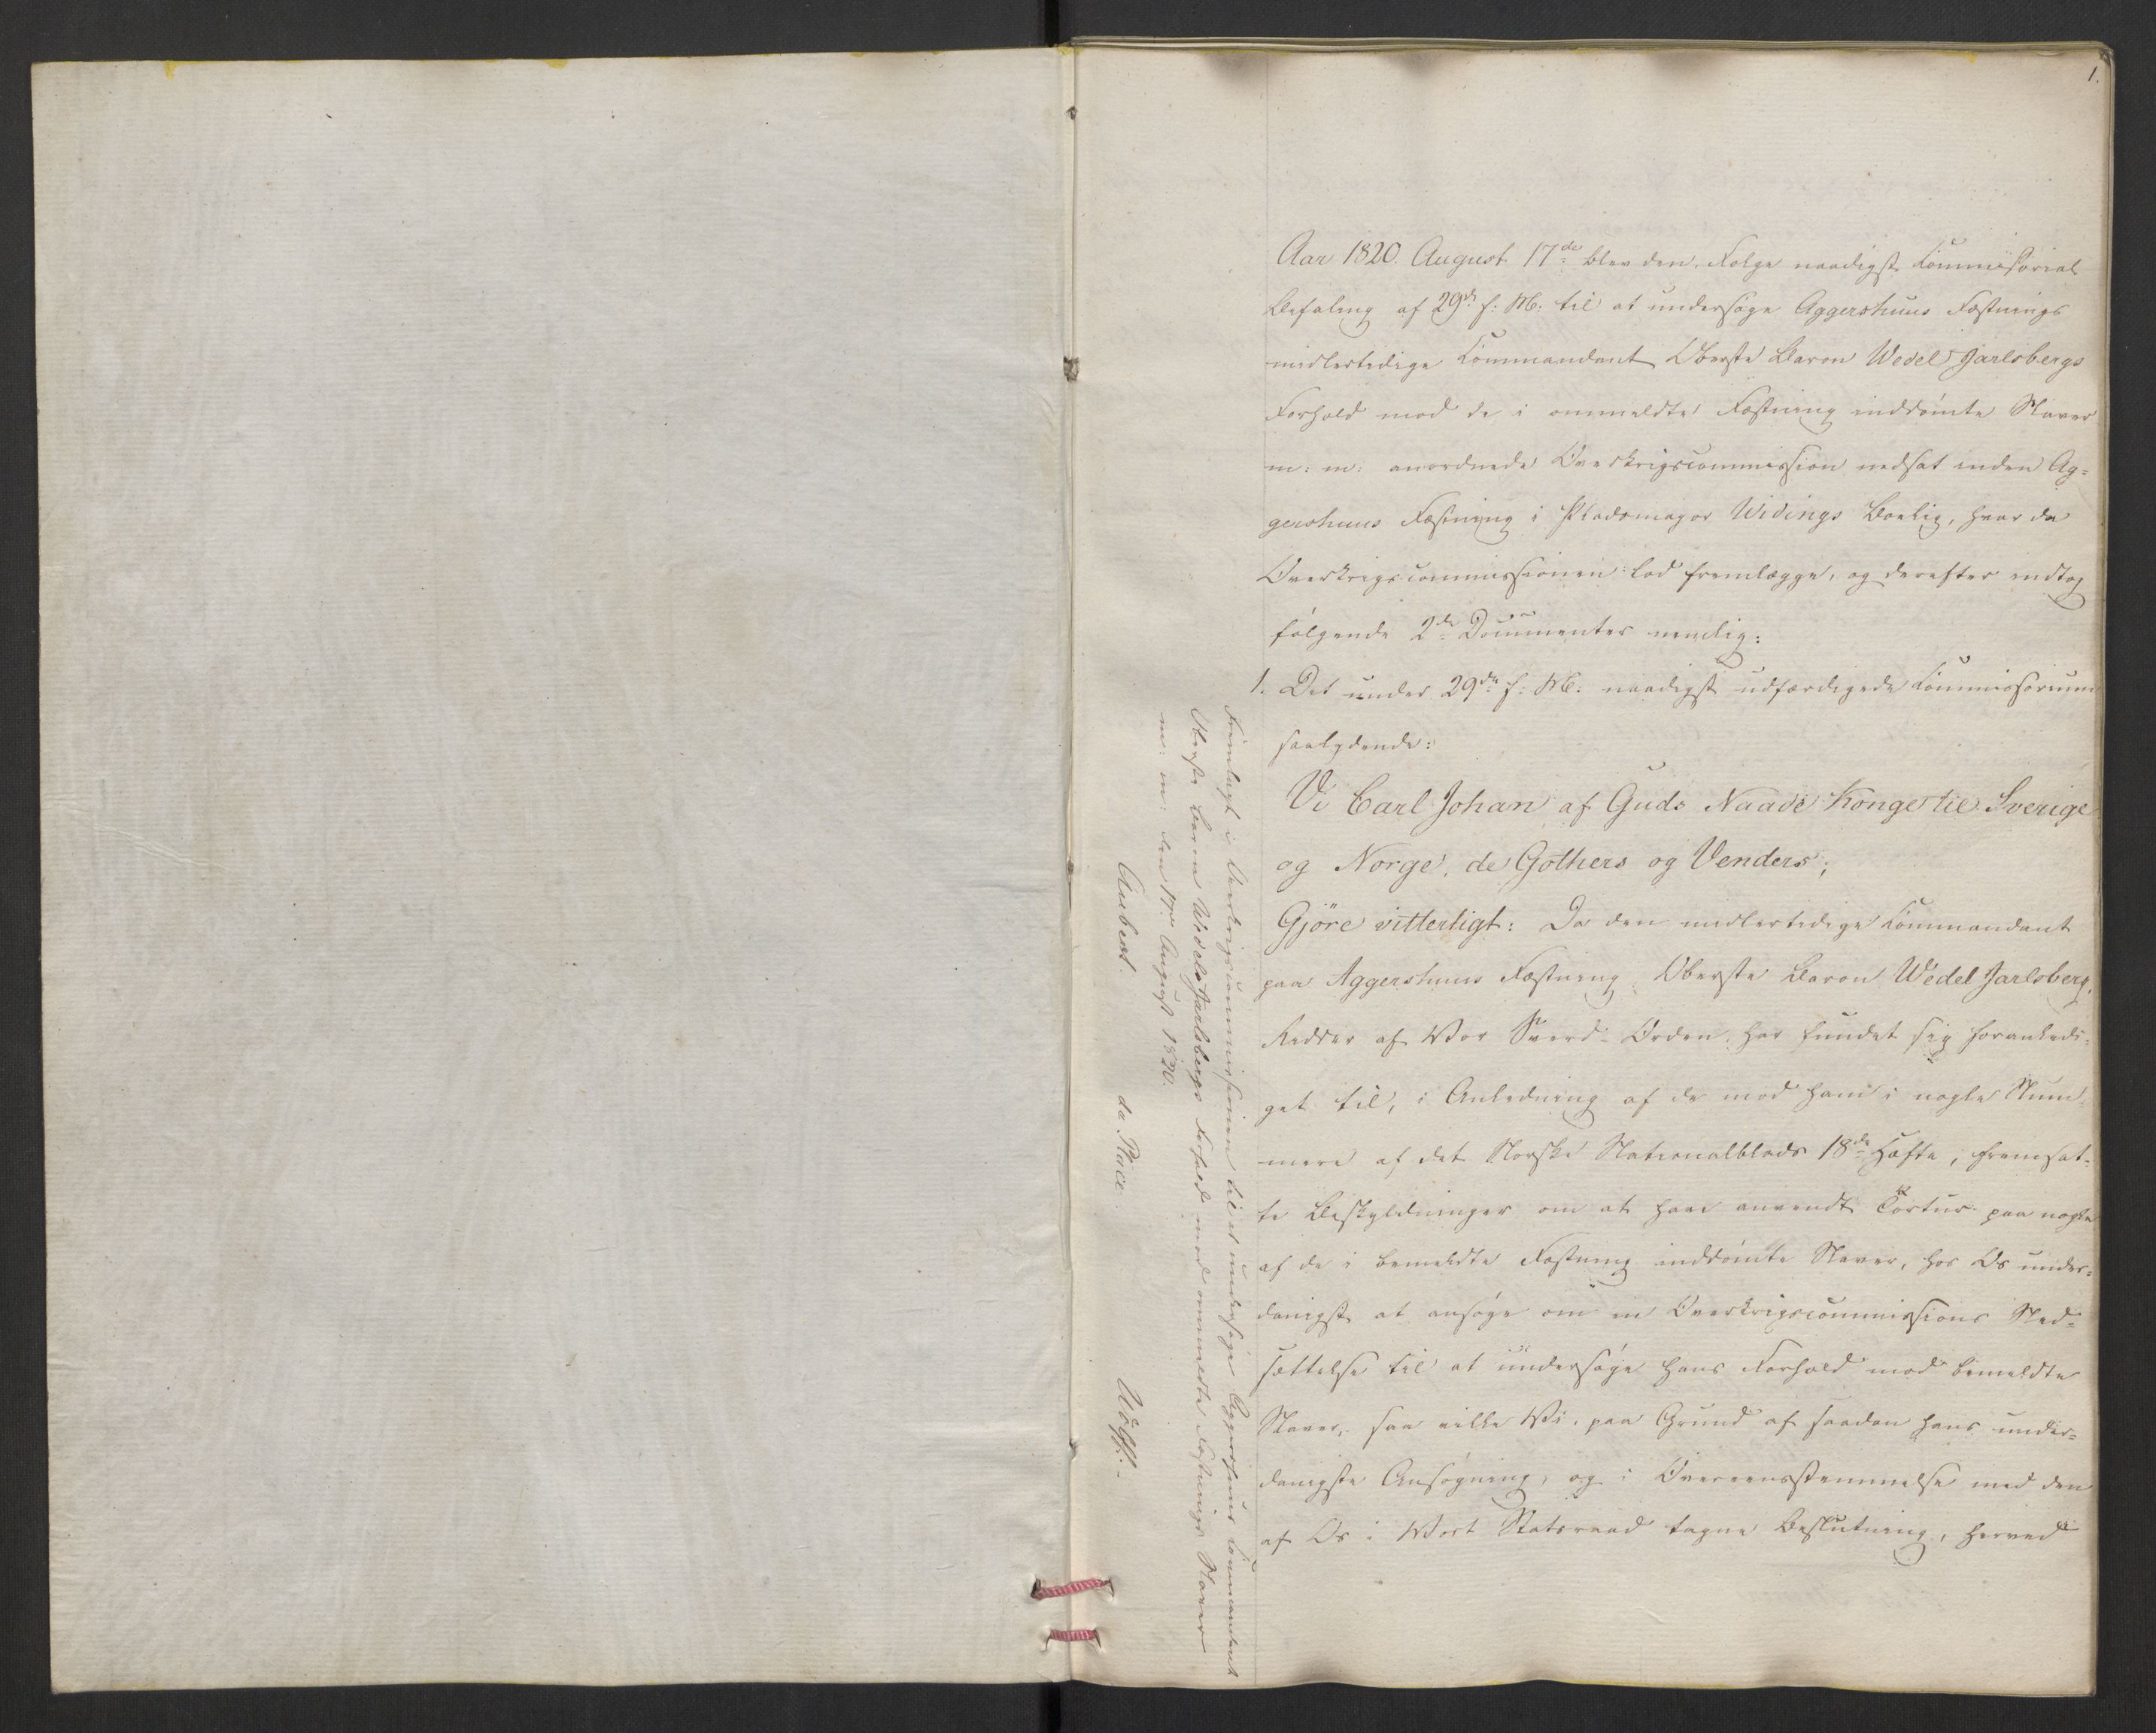 1.
Aar 1820. August 17de blev den, Følge naadigst Commissorial
Befaling af 29de f: M: til at undersøge Aggershuus Fæstnings
midlertidige Commandant Oberste Baron Wedel Jarlsbergs
Forhold mod de i ommeldte Fæstning inddømte Slaver
m: m: anordnede Overkrigscommission nedsat inden Ag=
gershuus Fæstning i Pladsmajor Widings Boelig, hvor da
Overkrigscommissionen lod fremlægge, og derefter indtog
følgende 2de Documenter nemlig:
1. Det under 29de f: M: naadigst udfærdigede Commissorium
saalydende:
Vi Carl Johan af Guds Naade Konge til Sverige
og Norge, de Gothers og Venders;
Gjöre vitterligt: Da den midlertidige Commandant
paa Aggershuus Fæstning Oberste Baron Wedel Jarlsberg,
Ridder af Vor Sværd-Orden, har fundet sig foranledi=
get til, i Anledning af de mod ham i nogle Num=
mere af det Norske Nationalblads 18de Hæfte, fremsat=
te Beskyldninger om at have anvendt Tortur paa nogle
af de i bemeldte Fæstning inddømte Slaver, hos Os under=
danigst at ansøge om en Overkrigscommissions Ned=
sættelse til at undersøge hans Forhold mod bemeldte
Slaver, saa ville Vi, paa Grund af saadan hans under=
danigste Ansøgning, og i Overeensstemmelse med den
af Os i Vort Statsraad tagne Beslutning, herved
Fremlagt i Overkrigscommissionen til at undersøge Aggershuus Commandant
Oberste Baron Wedel Jarlsbergs Forhold mod ommeldte Fæstnings Slaver
m: m: den 17de August 1820.
Aubert de Place Wolff.